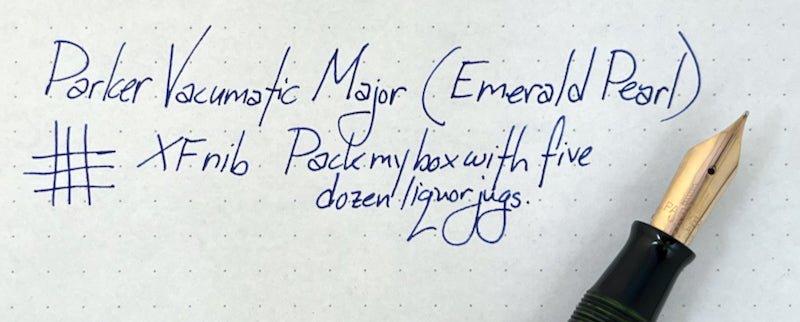 Parker Vacumatic Major (Emerald Pearl)
XF nib Pack my box with five
dozen liquor jugs.
PARKER